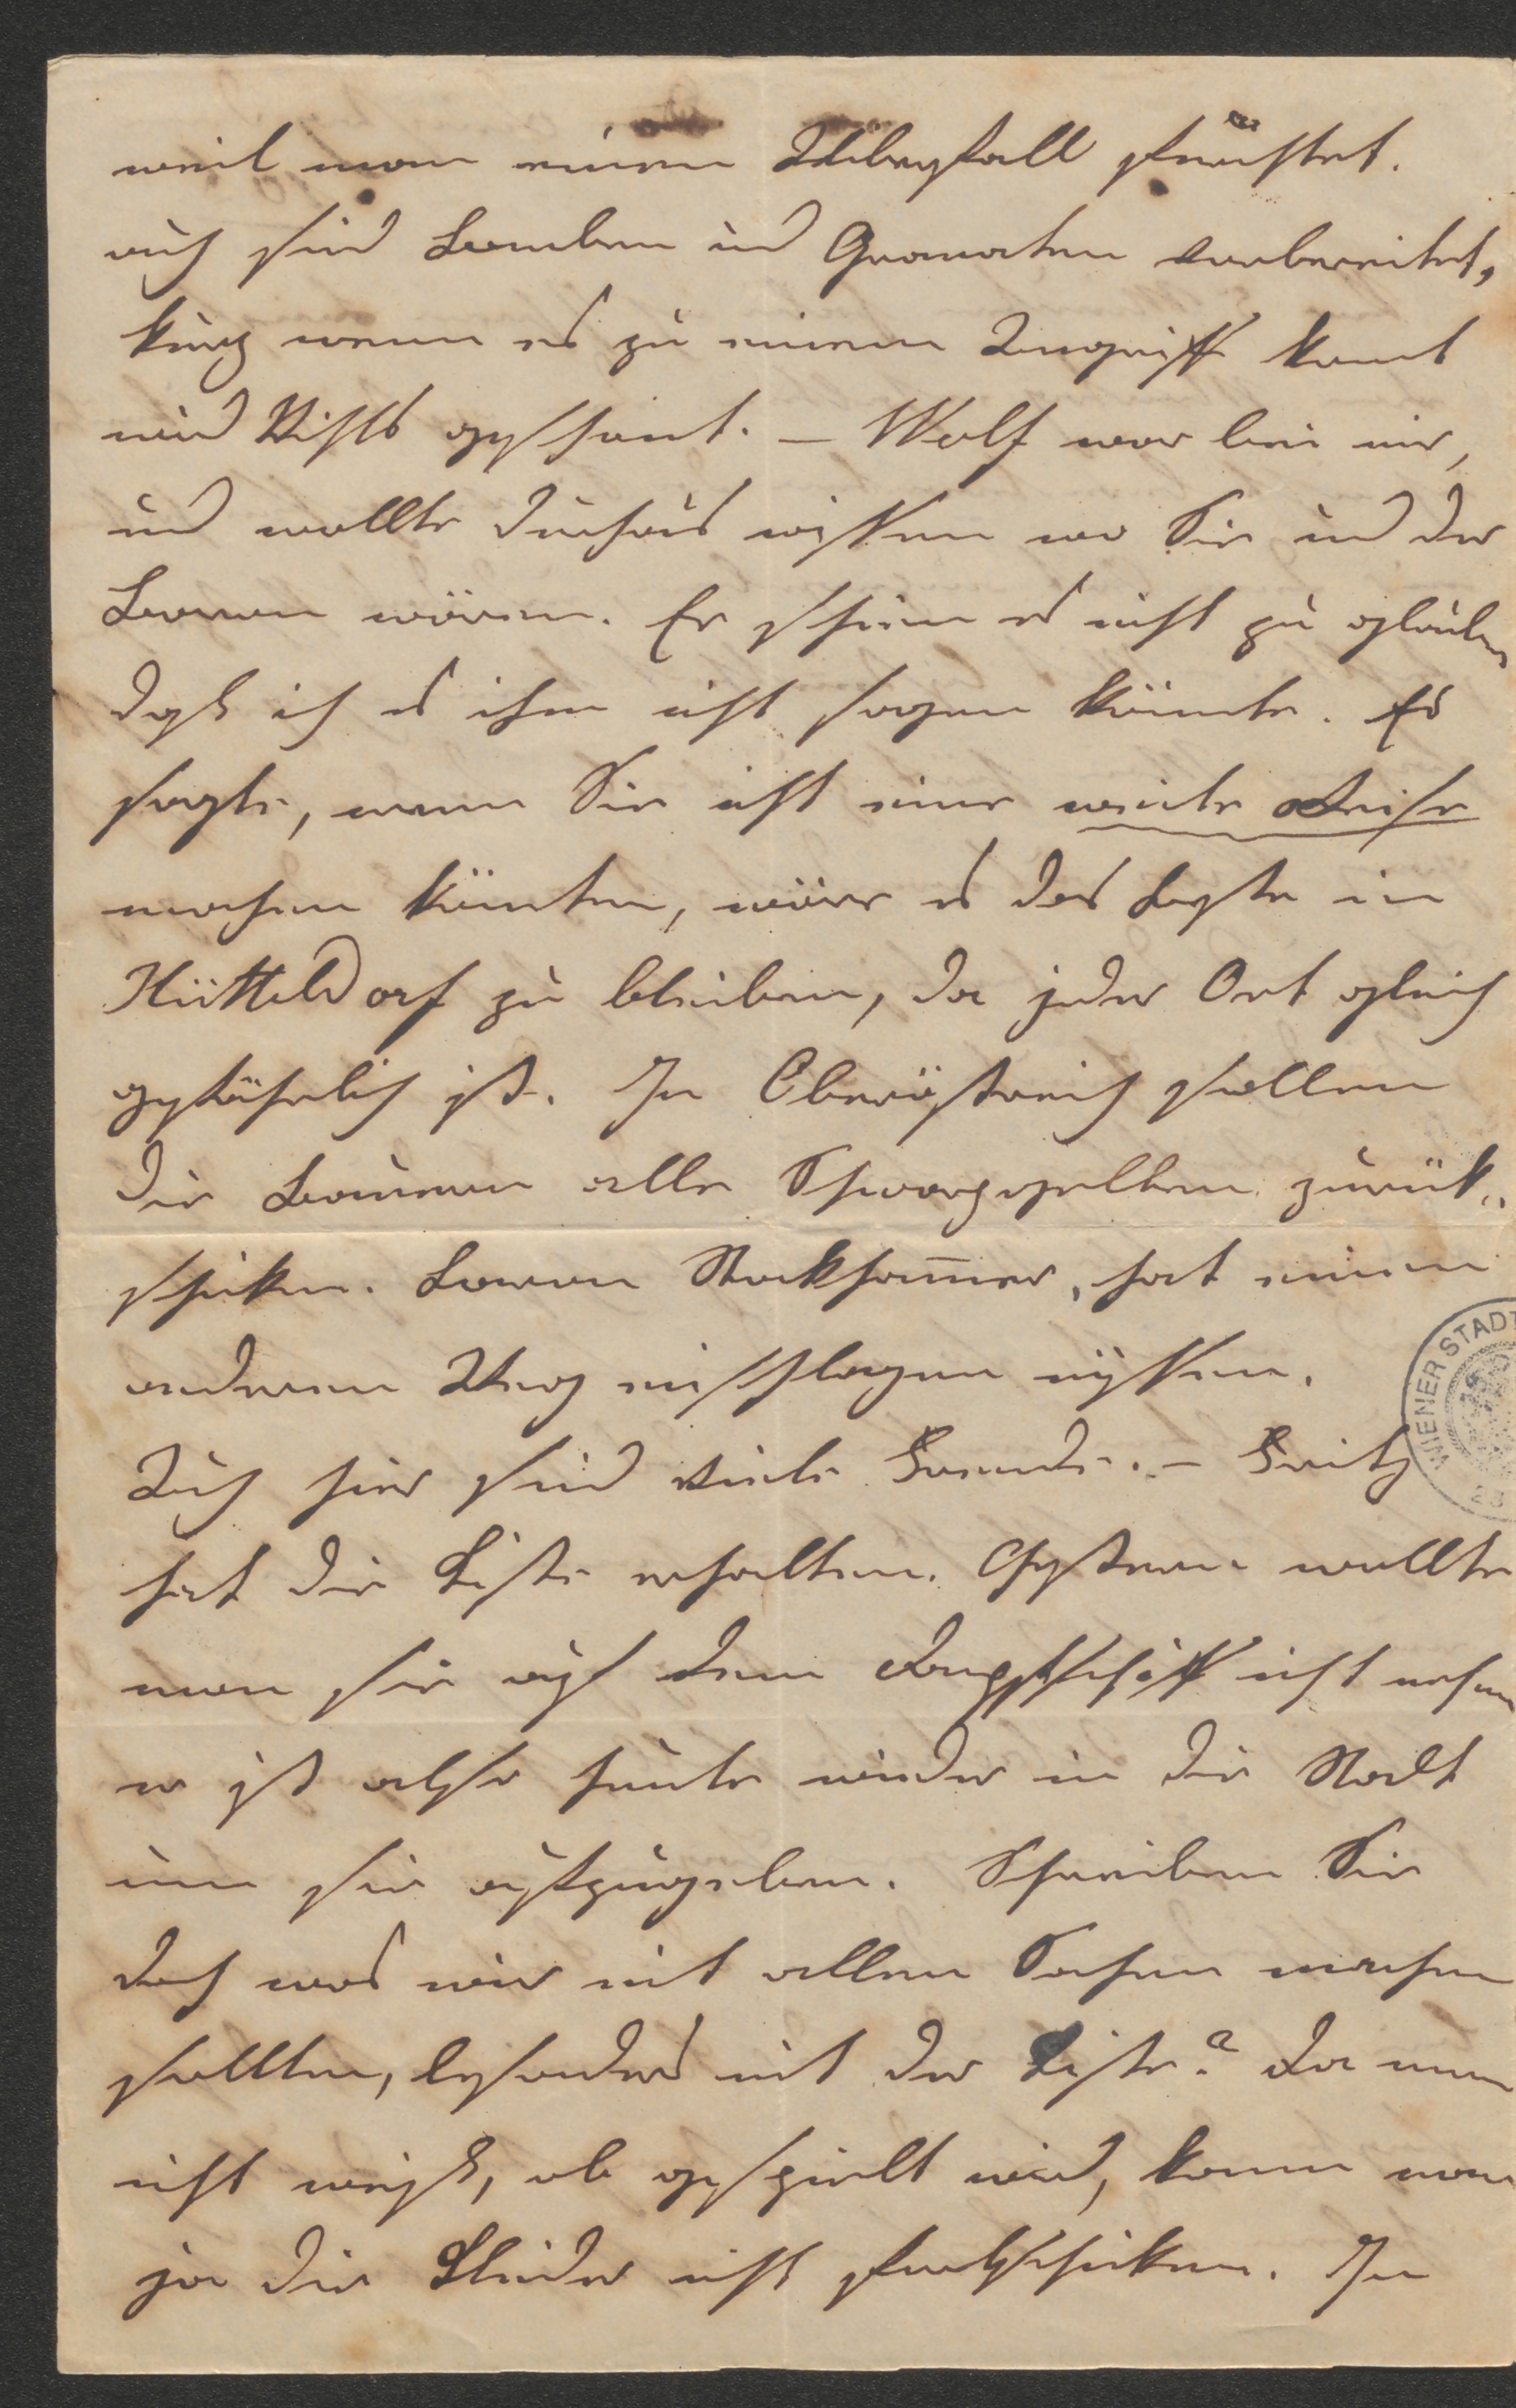 weil man einen Ueberfall fürchtet.
auch sind Bomben und Granaten vorbereitet,
kurz wenn es zu einem Angriff komt
wird Nichts geschont. – Wolf war bei mir,
und wollte durchaus wissen wo Sie und der
Baron wären. Er schien es nicht zu glauben
daß ich es ihm nicht sagen könnte. Er
sagte, wenn Sie nicht eine weite Reise
machen könnten, wäre es das Beste in
Hütteldorf zu bleiben, da jeder Ort gleich
gefährlich ist. In Oberöstreich sollen
die Bauern alle Schwarzgelben zurük„
schiken. Baron Stockham̄er, hat einen
anderen Weg einschlagen müssen.
Auch hier sind viele Fremde. – Fritz
hat die Kiste erhalten. Gestern wollte
man sie auf dem Dampfschiff nicht nehmen
er ist also heute wieder in die Stadt
um sie aufzugeben. Schreiben Sie
doch was wir mit allen Sachen machen
sollten, besonders mit der Kiste? Da man
nicht weiß, ob gespielt wird, kann man
ja die Kleider nicht fortschiken. In
WIENER STADT